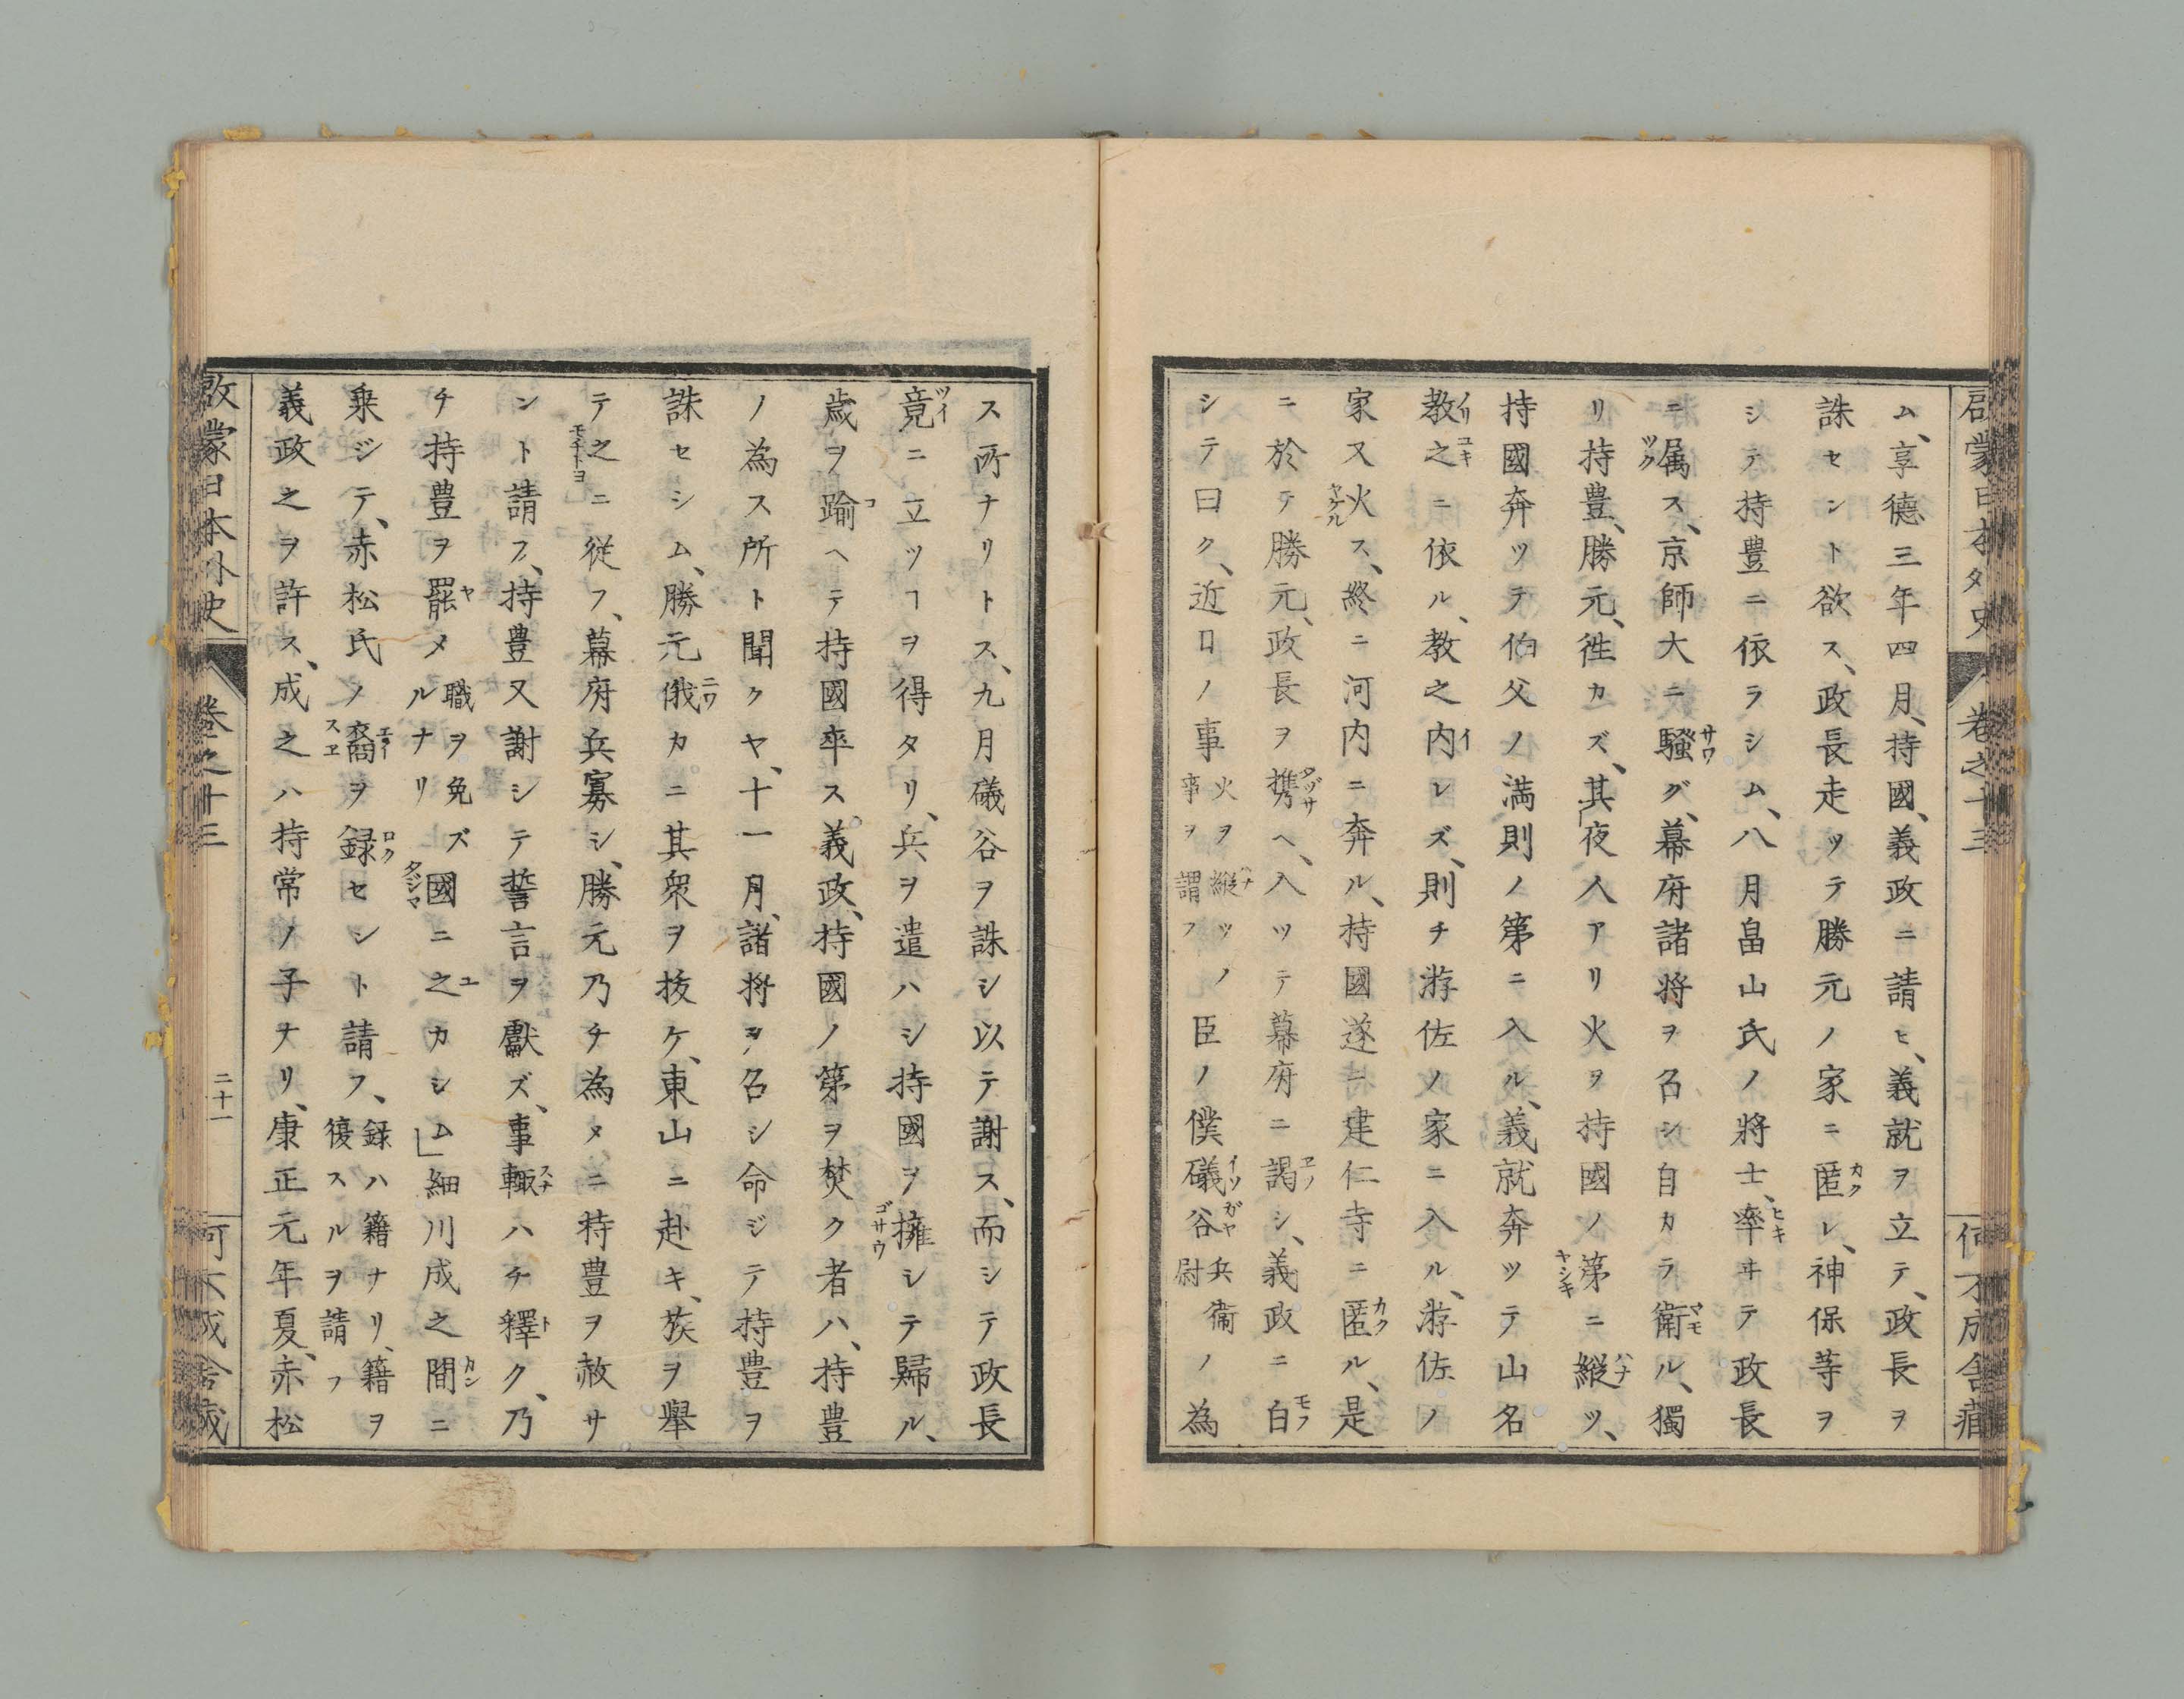 啓蒙日本外史 卷之十三 何不成舎藏
ム、享德三年四月、持國、義政ニ請ヒ、義就ヲ立テ、政長ヲ
誅セント欲ス、政長走ッテ勝元ノ家ニ匿レ、神保等ヲ
シテ持豊ニ依ラシム、八月畠山氏ノ將士、率ヰテ政長
ニ属ス、京師大ニ騒グ、幕府諸將ヲ召シ自カラ衛ル、獨
リ持豊、勝元、徃カズ、其夜人アリ火ヲ持國ノ第ニ縱ツ、
持國奔ッテ伯父ノ満則ノ第ニ入ル、義就奔ッテ山名
教之ニ依ル、教之内レズ、則チ游佐ノ家ニ入ル、游佐ノ
家又火ス、終ニ河内ニ奔ル、持國遂ニ建仁寺ニ匿ル、是
ニ於テ勝元、政長ヲ携ヘ、入ッテ幕府ニ謁シ、義政ニ白
シテ曰ク、近日ノ事火ヲ縱ツノ事ヲ謂フ臣ノ僕礒谷兵衞尉ノ為
ス所ナリトス、九月礒谷ヲ誅シ以テ謝ス、而シテ政長
竟ニ立ツヿヲ得タリ、兵ヲ遣ハシ持國ヲ擁シテ歸ル、
歳ヲ踰ヘテ持國卒ス、義政、持國ノ第ヲ焚ク者ハ、持豊
ノ為ス所ト聞クヤ、十一月、諸將ヲ召シ命ジテ持豊ヲ
誅セシム、勝元俄カニ其衆ヲ抜ケ、東山ニ赴キ、族ヲ舉
テ之ニ従フ、幕府兵寡シ、勝元乃チ為メニ持豊ヲ赦サ
ント請フ、持豊又謝シテ誓言ヲ獻ズ、事輙ハチ釋ク、乃
チ持豊ヲ罷メ職ヲ免ズルナリ國ニ之カシム」細川成之間ニ
乗ジテ、赤松氏ノ裔ヲ録セシト請フ、録ハ籍ナリ、籍ヲ復スルヲ請フ
義政之ヲ許ス、成之ハ持常ノ子ナリ、康正元年夏、赤松
啓蒙日本外史 卷之十三 二十一 何不成舎藏